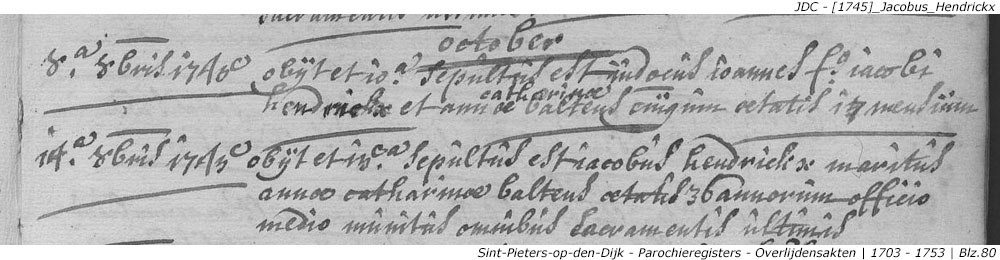 JDC - [1745]_Jacobus_Hendrickx
sacramentis ultimis
october
8.a 8bris 1745 obijt et 10.a sepultus est iudocus ioannes f.s iacobi
catharinæ
hendrickx et annæ baltens conjugum ætatis 17 mensium
14.a 8bris 1745 obijt et 15.a sepultus est iacobus hendrickx maritus
annæ catharinæ baltens ætatis 36 annorum officio
medio munitus omnibus sacramentis ultimis
Sint-Pieters-op-den-Dijk - Parochieregisters - Overlijdensakten | 1703 - 1753 | Blz.80